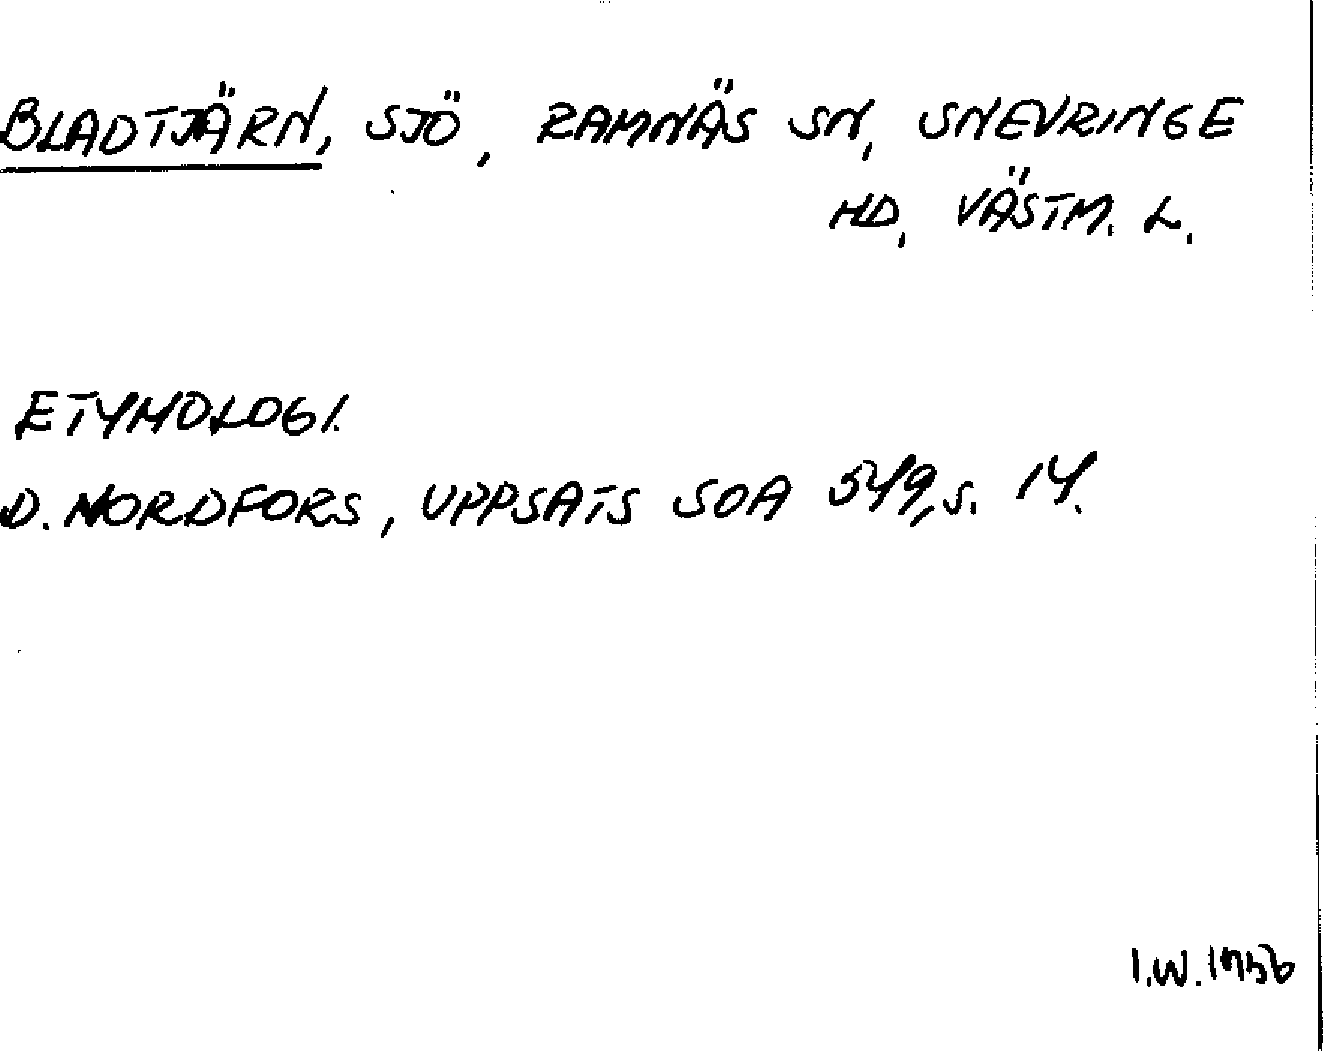 BLADTJÄRN, SJÖ, RAMNÄS SN, SNEVRINGE
HD, VÄSTM. L.
ETYMOLOGI.
D. NORDFORS, UPPSATS SOA 549, S. 14.
I.W. 1956